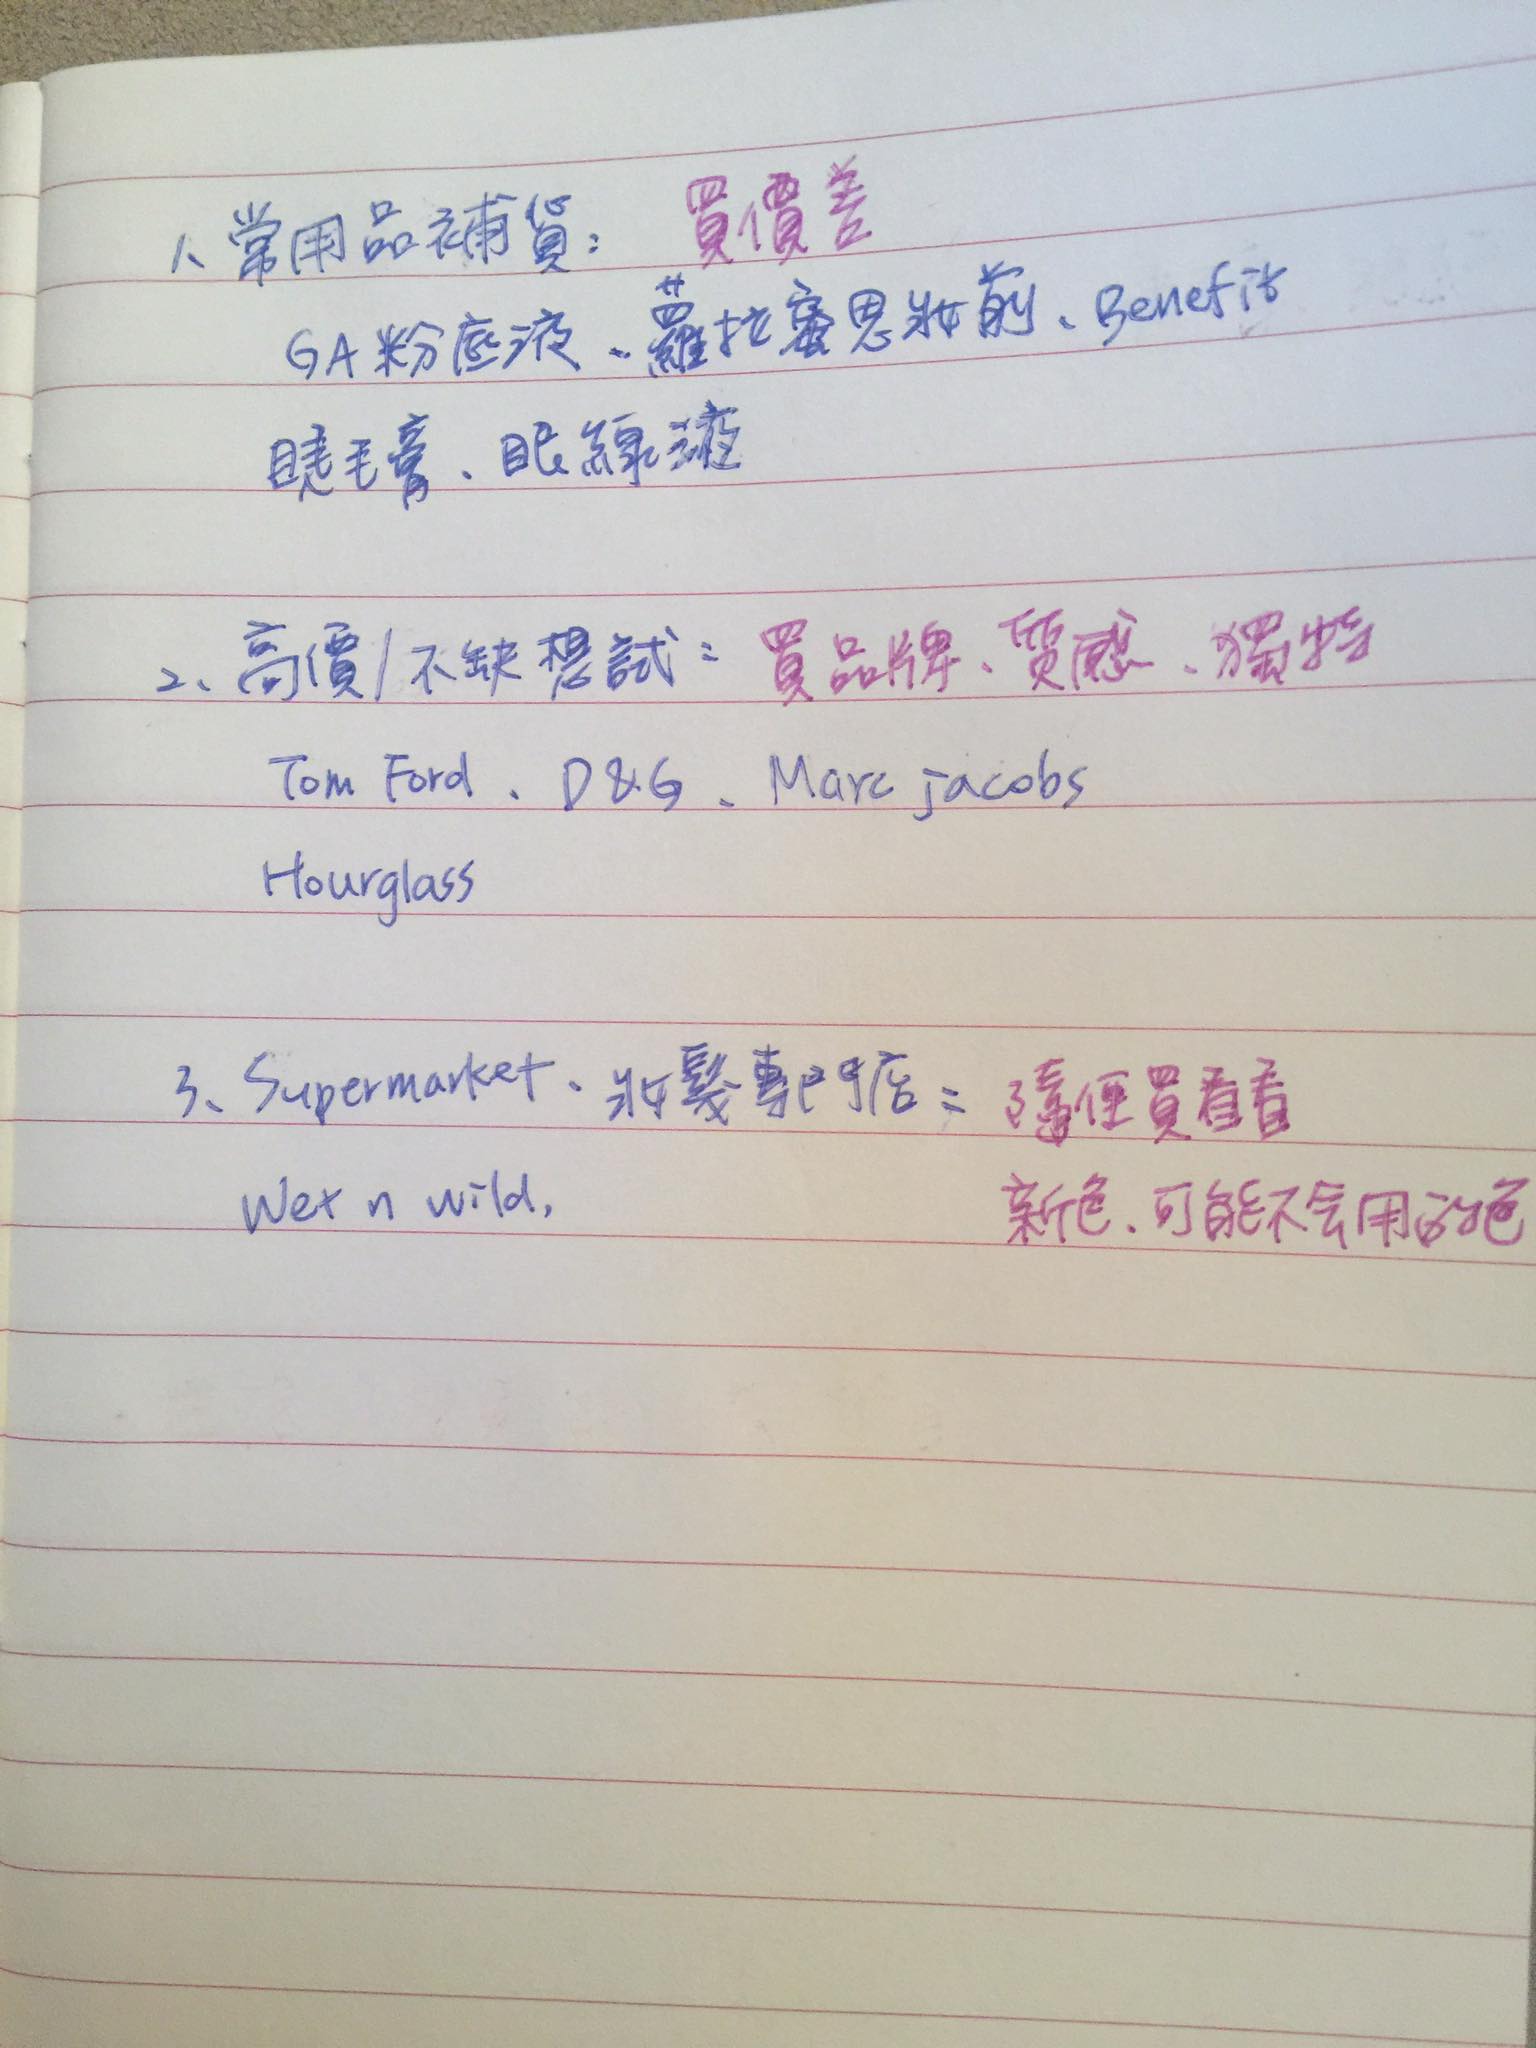 1、常用品補貨: 買價差
GA粉底液、蘿拉蜜思妝前、Benefit
睫毛膏、眼線液
2、高價/不缺想試: 買品牌、質感、獨特
Tom Ford、D&G、Marc jacobs
Hourglass
3、Supermarket、妝髮專門店: 隨便買看看
Wet n wild, 新色、可能不會用的色